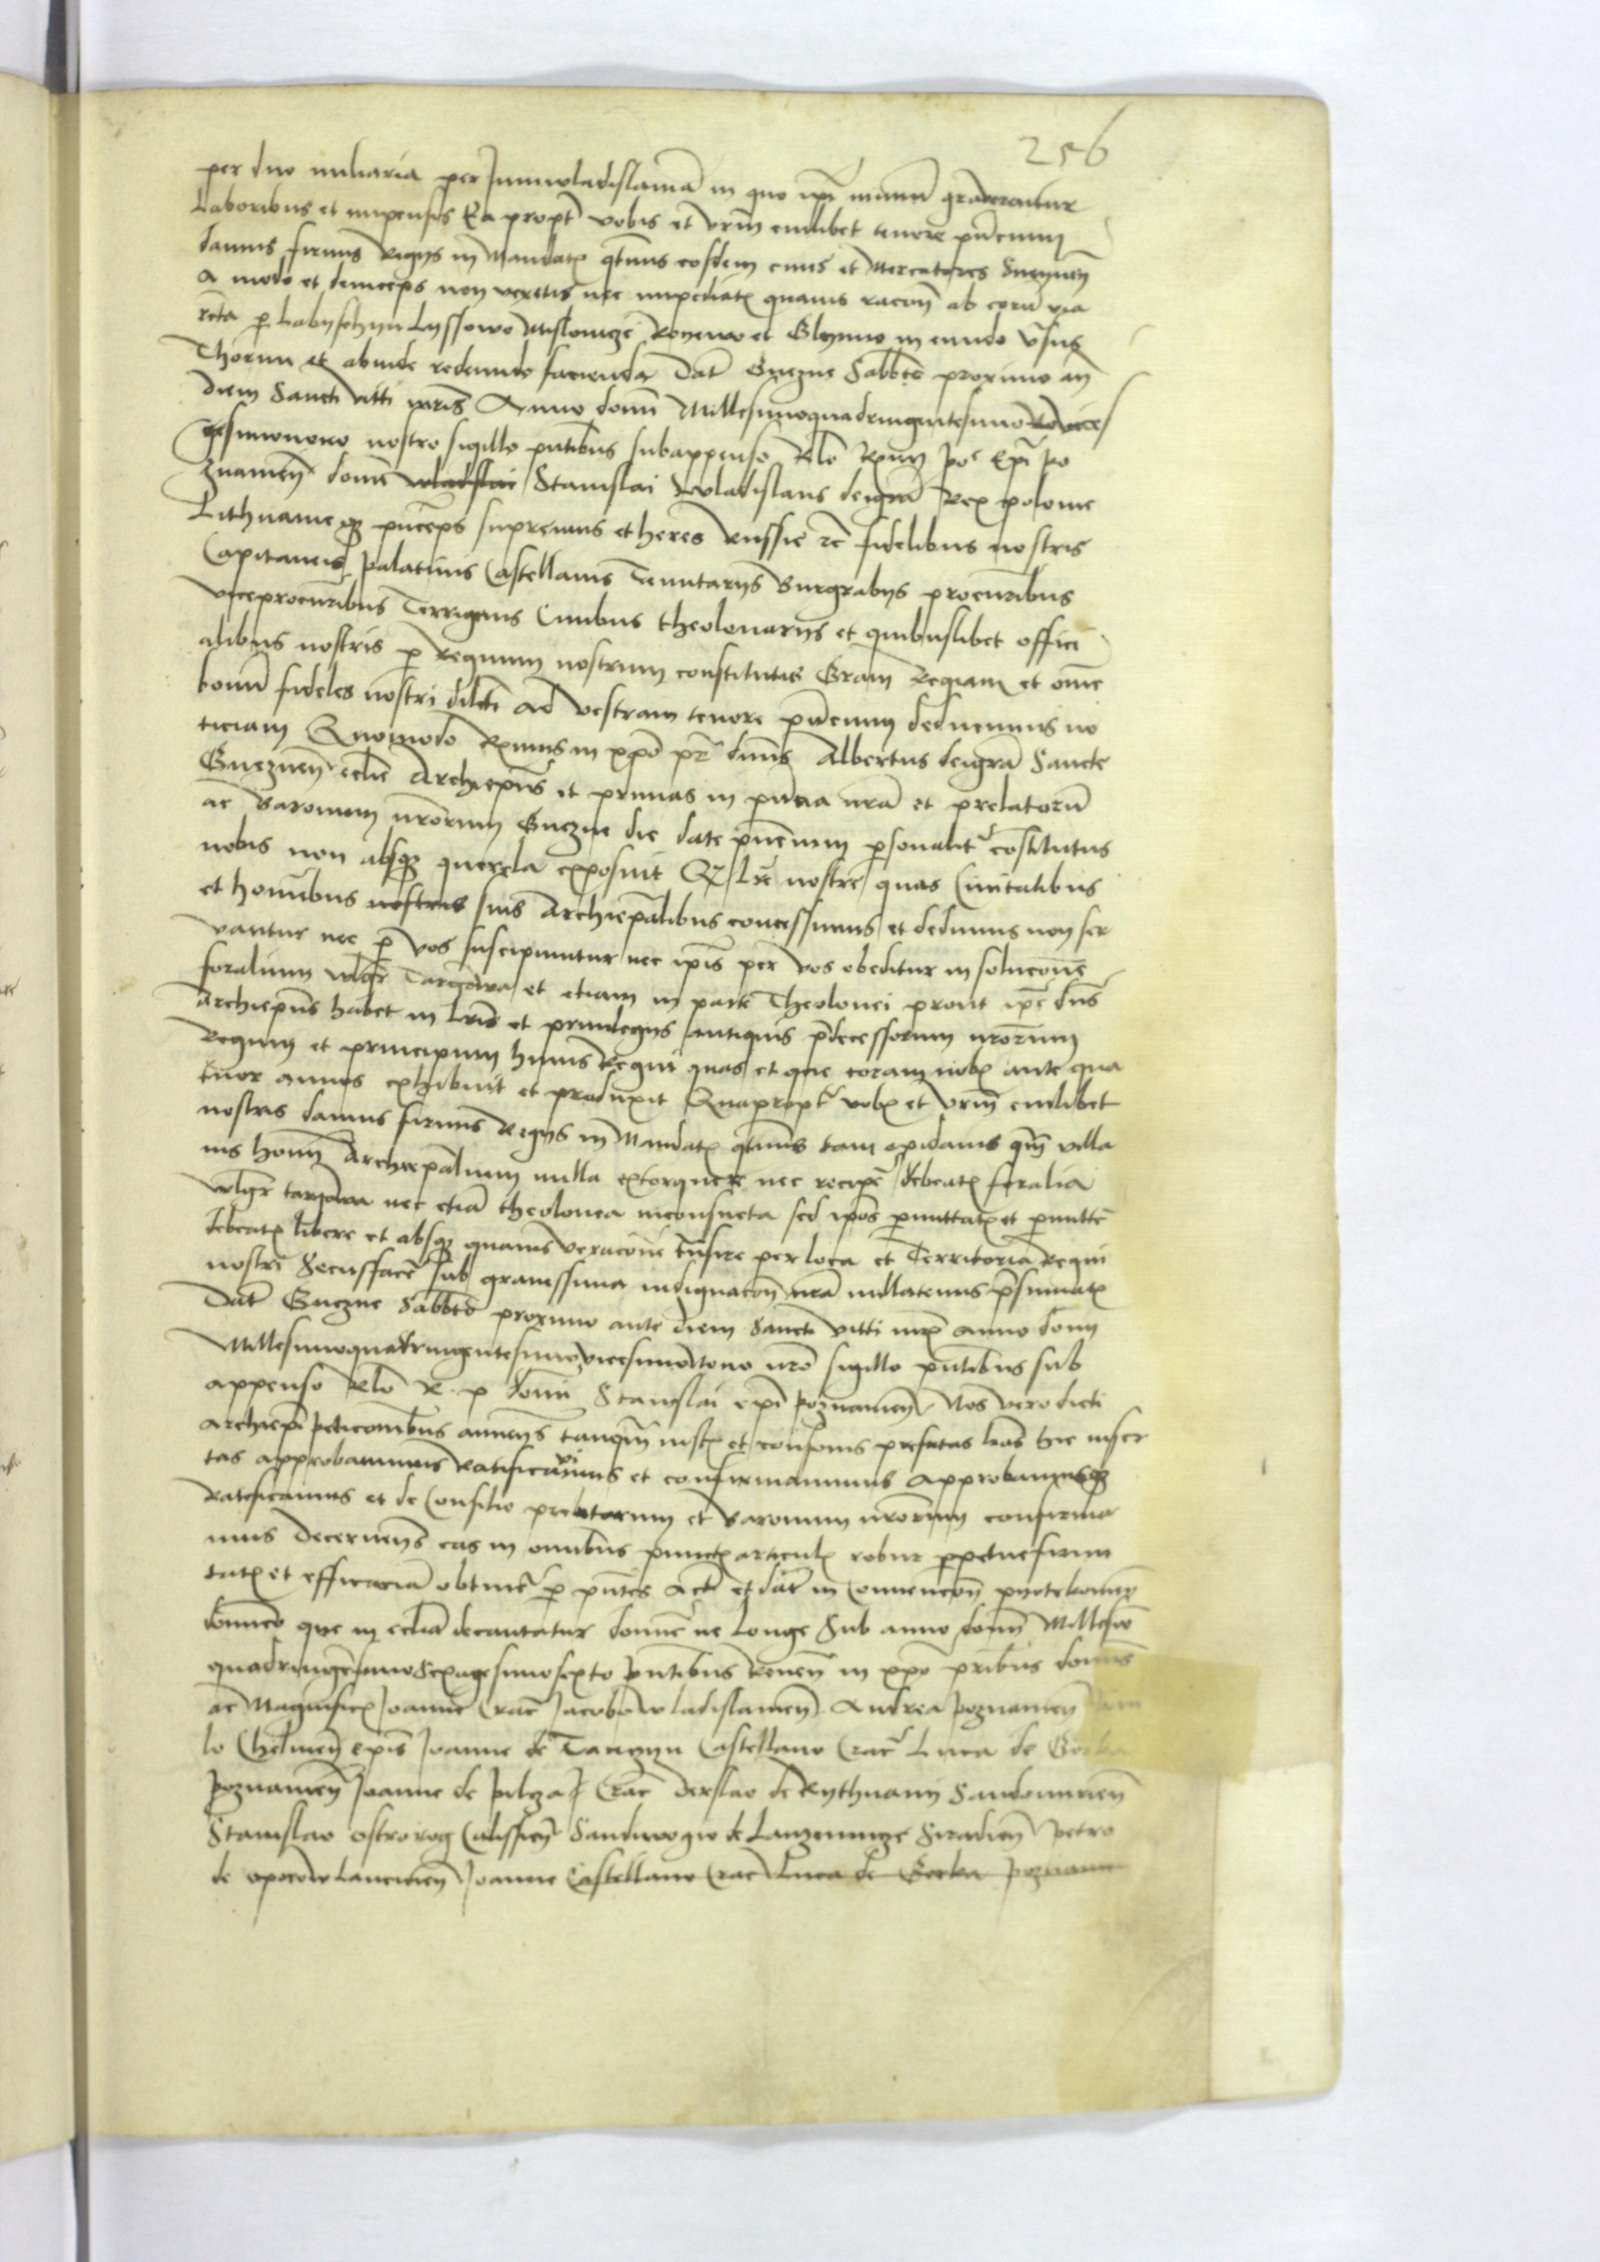 256
per duo miliaria per Juniwladislauia in quo ipi nimiu grauerantur
Laboribus et impensis Ea propt vobis et vrm cuilibet tenore pncium
damus firmis Regijs in Mandatis qtnus eosdem ciues et Mercatores
A modo et deinceps non vexetis nec impediatis quauis racon ab eoru via
rcta p Labyschyn Lyssowo et in eundo vsus
Thorun et abinde redeundo facienda Dat Gnezne Sabbto proximo an
diem Sancti Viti mris Anno domi Millesimoquadringentesimo
gesimonono nostro sigillo pntibus subappenso Rlo
znamen domi wladslai Stanislai Wladislaus deigra Rex polonie
Lithuanieqz princeps supremus et heres Russie rc fidelibus nostris
Capitaneis palatinis Castellanis Tenutarijs Burgrabijs procuribus
viceprocuribus Terrigenis Ciuibus theolonarijs et quibuslibet offici
alibus nostris p Regnum nostrum constitutis Gram Regiam et ome
bonu fideles nostri dilcti Ad vestram tenore pncium deducimus no
ticiam Quomodo Rmus in xpo pr dnus Albertus deigra Sancte
Gneznen eclie Archiepus et primas in pncia nra et prelatoru
ac Baronum nrorum Gnezne die date pncium psonalit costitutus
nobis non absqz querela exposuit Qz lre nostre quas Ciuitatibus
et hominibus nostris suis Archiepalibus concessimus et dedimus non ser
vantur nec p vos suscipiuntur nec ipis per vos obeditur in solucone
foralium wlgr Targowa et etiam in parte Theolonei prout ipe dns
Archiepus habet in lris et priuilegijs antiquis pdecessorum nrorum
Regum et principum huius Regni quas et que coram nobis ante qua
tuor annos exhibuit et produxit Quapropt vobis et vrm cuilibet
nostris damus firmis Regijs in Mandatis qtnus tam opidanis qm villa
nis homi Archiepalium nulla extorquere nec recipe debeatis foralia
wlgr targowa nec etia theolonea inconsueta sed ipos pmittatis et pmitte
debeatis libere et absqz quauis vexacone tnsire per loca et Territoria Regni
nostri Secusfacere sub grauissima indignacon nra nullatenus psumatis
Dat Gnezne Sabbto proximo ante diem Sancti Viti mris anno domi
Millesimoquadringentesimo vicesimonono nro sigillo pntibus sub
appenso Rlo R p domi Stanislai epi poznamen Nos vero dicti
archiepi peticonibus annuens tanqm iustis et consonis prefatas lras hic inser
tas approbauimus Ratificauimus et confirmauimus Approbamusqz
Ratificamus et de Consilio prelatorum et Baronum nrorum confirma
mus Decernens eas in omnibus punctis articulis robur ppetue firmi
tatis et efficacia obtine p pntes Act et dat in Conuencon
dominico que in eclia decantatur domine ne longe Sub anno domi Millesio
quadringesimo Sexagesimosexto pntibus Reuen in xpo pribus dominis
ac Magnificis Joanne Crac Jacobo wladislauien Andrea poznamen
lo Chelmen epis Joanne de Tanczyn Castellano Crac Luca de Gorka
poznamen Joanne de pilcza Crac Derslao de Rythwani Sandomirien
Stanislao ostrorog Calissien Sandiwogio de Lanzenicze Siradien petro
de opocow Lancicien Joanne Castellano Crac Luca de Gorka poznam